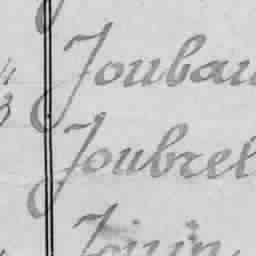 Joubau
Joubrel
Jouin